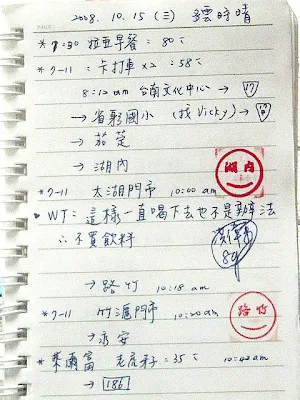 2008. 10. 15 (三) 多雲時晴
*7:30 拉亞早餐: 80元
*7-11 : 卡打車 x2 = 58元
8:12 am 台南文化中心 → 17
→ 省躬國小 (找 Vicky) →
→ 茄萣
→ 湖內
湖內
*7-11 太湖門市 10:00 am
WT: 這樣一直喝下去也不是辦法
∴ 不買飲料
89
→ 路竹 10:18 am
路竹
*7-11 竹滬門市 10:20 am
→ 永安
*萊爾富 老虎牙子=35元 10:42 am
→ 186